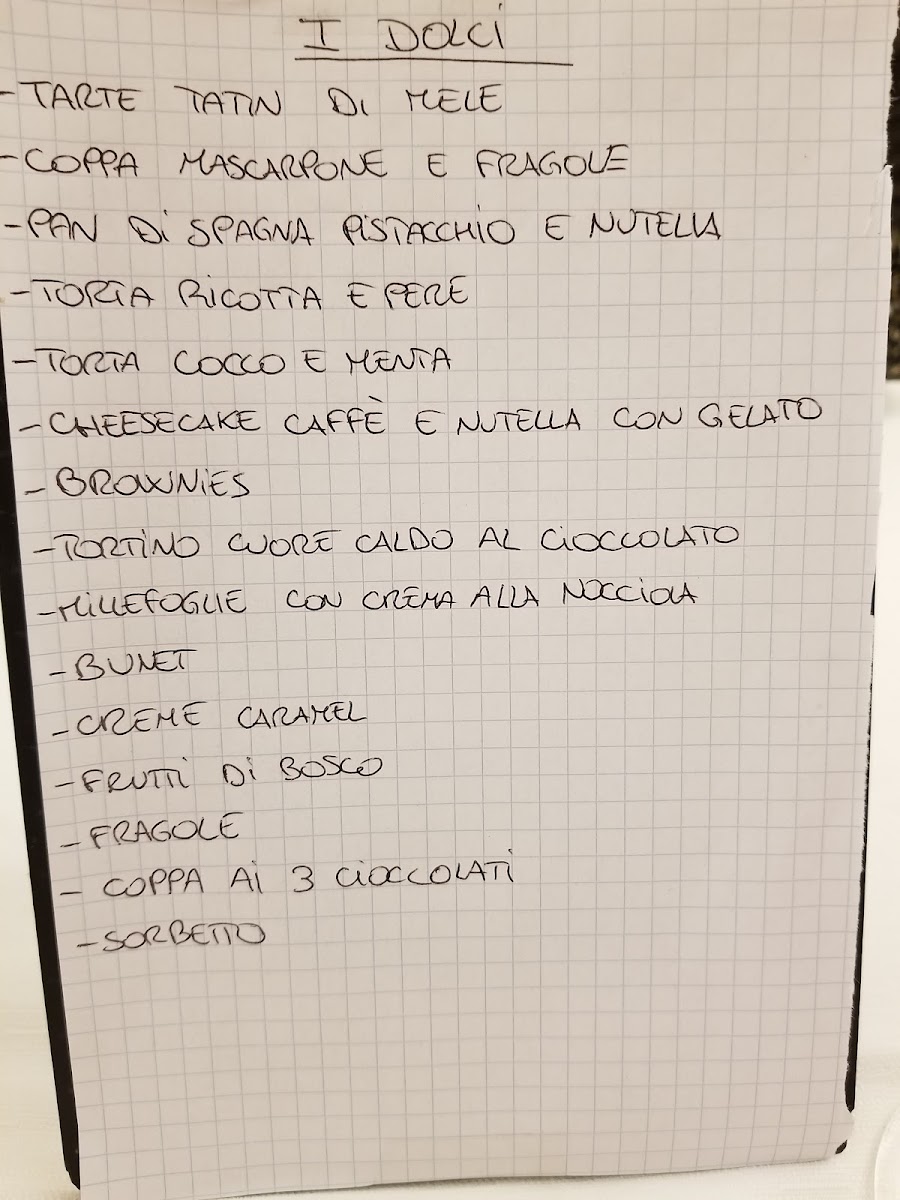 I DOLCI
- TARTE TATIN DI MELE
- COPPA MASCARPONE E FRAGOLE
- PAN DI SPAGNA PISTACCHIO E NUTELLA
- TORTA RICOTTA E PERE
- TORTA COCCO E MENTA
- CHEESECAKE CAFFÈ E NUTELLA CON GELATO
- BROWNIES
- TORTINO CUORE CALDO AL CIOCCOLATO
- MILLEFOGLIE CON CREMA ALLA NOCCIOLA
- BUNET
- CREME CARAMEL
- FRUTTI DI BOSCO
- FRAGOLE
- COPPA AI 3 CIOCCOLATI
- SORBETTO